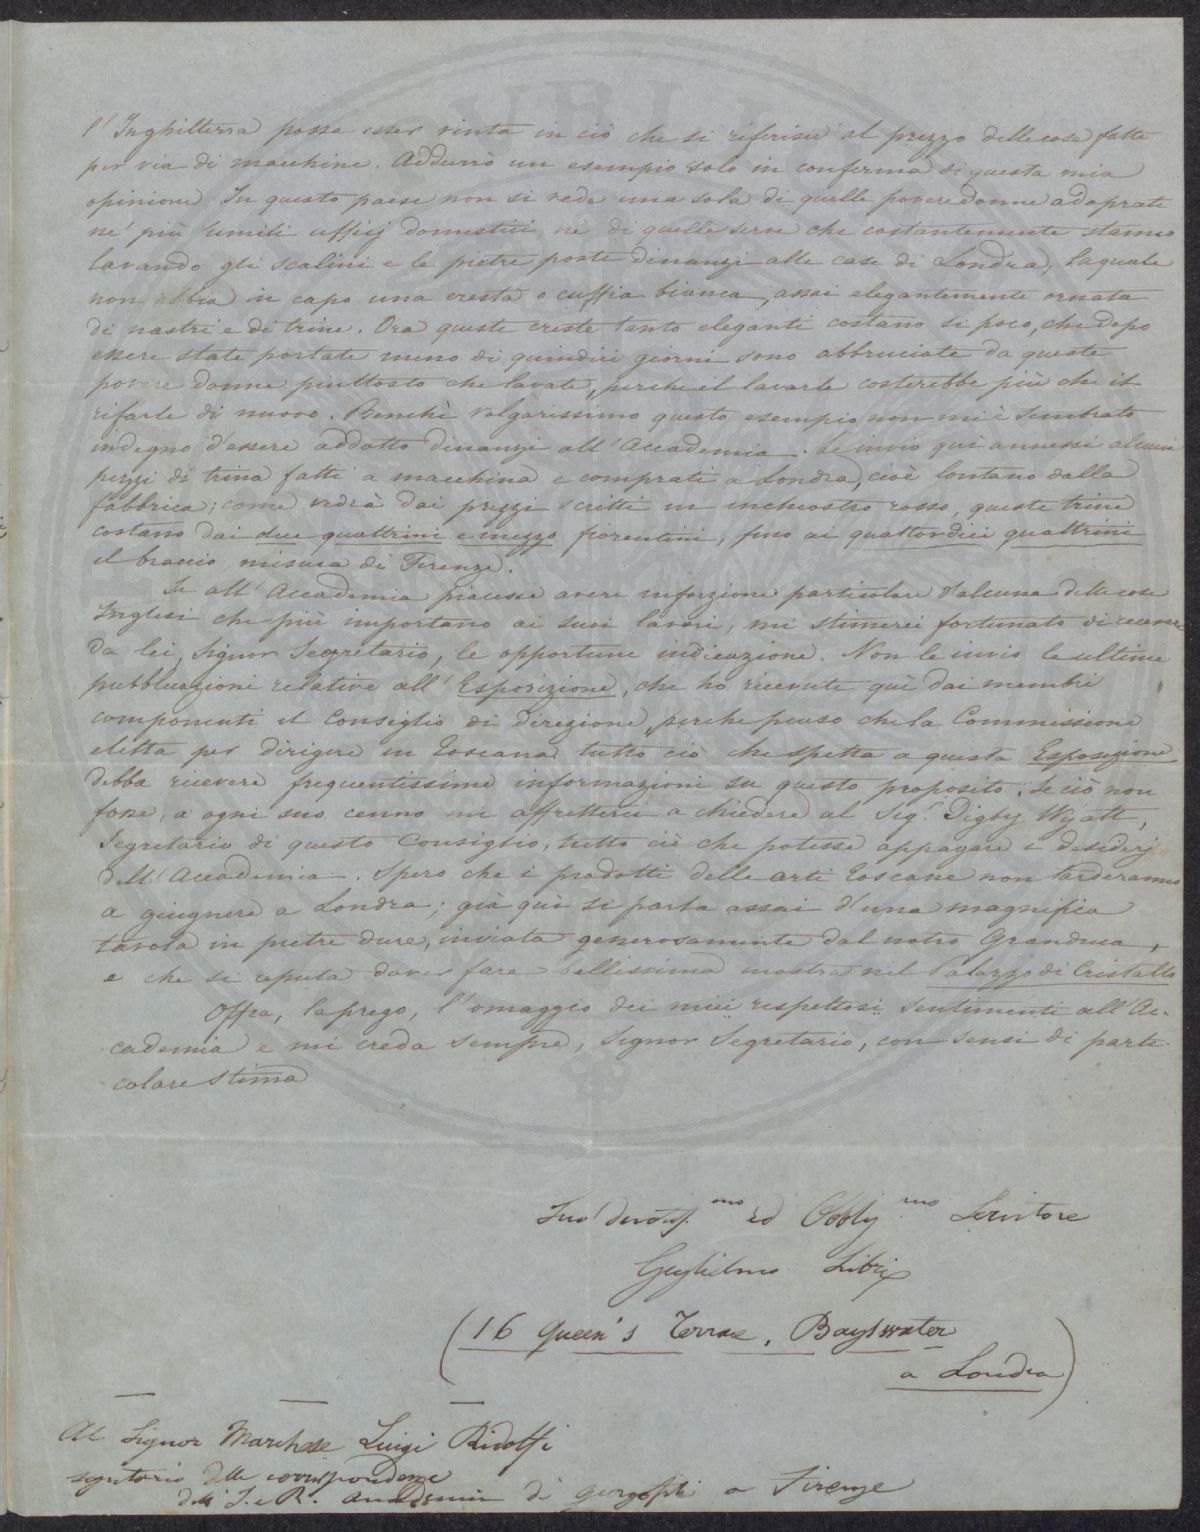 l'Inghilterra possa esser vinta in ciò che si riferisce al prezzo delle cose fatte
per via di macchine. Addurrò un esempio solo in conferma di questa mia
opinione. In questo paese non si vede una sola di quelle povere donne adoprate
ne' più umili uffizj domestici nè di quelle serve che costantemente stanno
lavando gli scalini e le pietre poste dinanzi alle case di Londra, la quale
non abbia in capo una cresta o cuffia bianca, assai elegantemente ornata
di nastri e di trine. Ora queste creste tanto eleganti costano sì poco, che dopo
essere state portate meno di quindici giorni sono abbruciate da queste
povere donne piuttosto che lavate, perchè il lavarle costerebbe più che il
rifarle di nuovo. Benchè volgarissimo questo esempio non mi è sembrato
indegno d'essere addotto dinanzi all'Accademia. Le invio quì annessi alcuni
pezzi di trina fatti a macchina e comprati a Londra, cioè lontano dalla
fabbrica; come vedrà dai prezzi scritti in inchiostro rosso, queste trine
costano dai due quattrini e mezzo fiorentini, fino ai quattordici quattrini
il braccio, misura di Firenze.
Se all'Accademia piacesse avere informazione particolare d'alcuna delle cose
Inglesi che più importano ai suoi lavori, mi stimerei fortunato di ricevere
da lei, Signor Segretario, le opportune indicazione. Non le invio le ultime
pubblicazioni relative all'Esposizione, che ho ricevute quì dai membri
componenti il Consiglio di direzione, perchè penso che la Commissione
eletta per dirigere in Toscana tutto ciò che spetta a questa Esposizione
debba ricevere frequentissime informazioni su questo proposito. Se ciò non
fosse, a ogni suo cenno mi affretterei a chiedere al Sig.r Digby Wyatt,
Segretario di questo Consiglio, tutto ciò che potesse appagare i desiderj
dell'Accademia. Spero che i prodotti delle arti Toscane non tarderanno
a giugnere a Londra; già quì si parla assai d'una magnifica
tavola in pietre dure, inviata generosamente dal nostro Granduca,
e che si reputa dover fare bellissima mostra nel Palazzo di Cristallo
Offra, la prego, l'omaggio dei miei rispettosi sentimenti all'Ac-
cademia e mi creda sempre, Signor Segretario, con sensi di parti-
colare stima
Suo devotiss.mo ed Obblig.mo Servitore
Guglielmo Libri
(16 Queen's Terrace, Bayswater
a Londra)
Al Signor Marchese Luigi Ridolfi
segretario delle corrispondenze
dell'I. e R. Accademia di Georgofili a Firenze